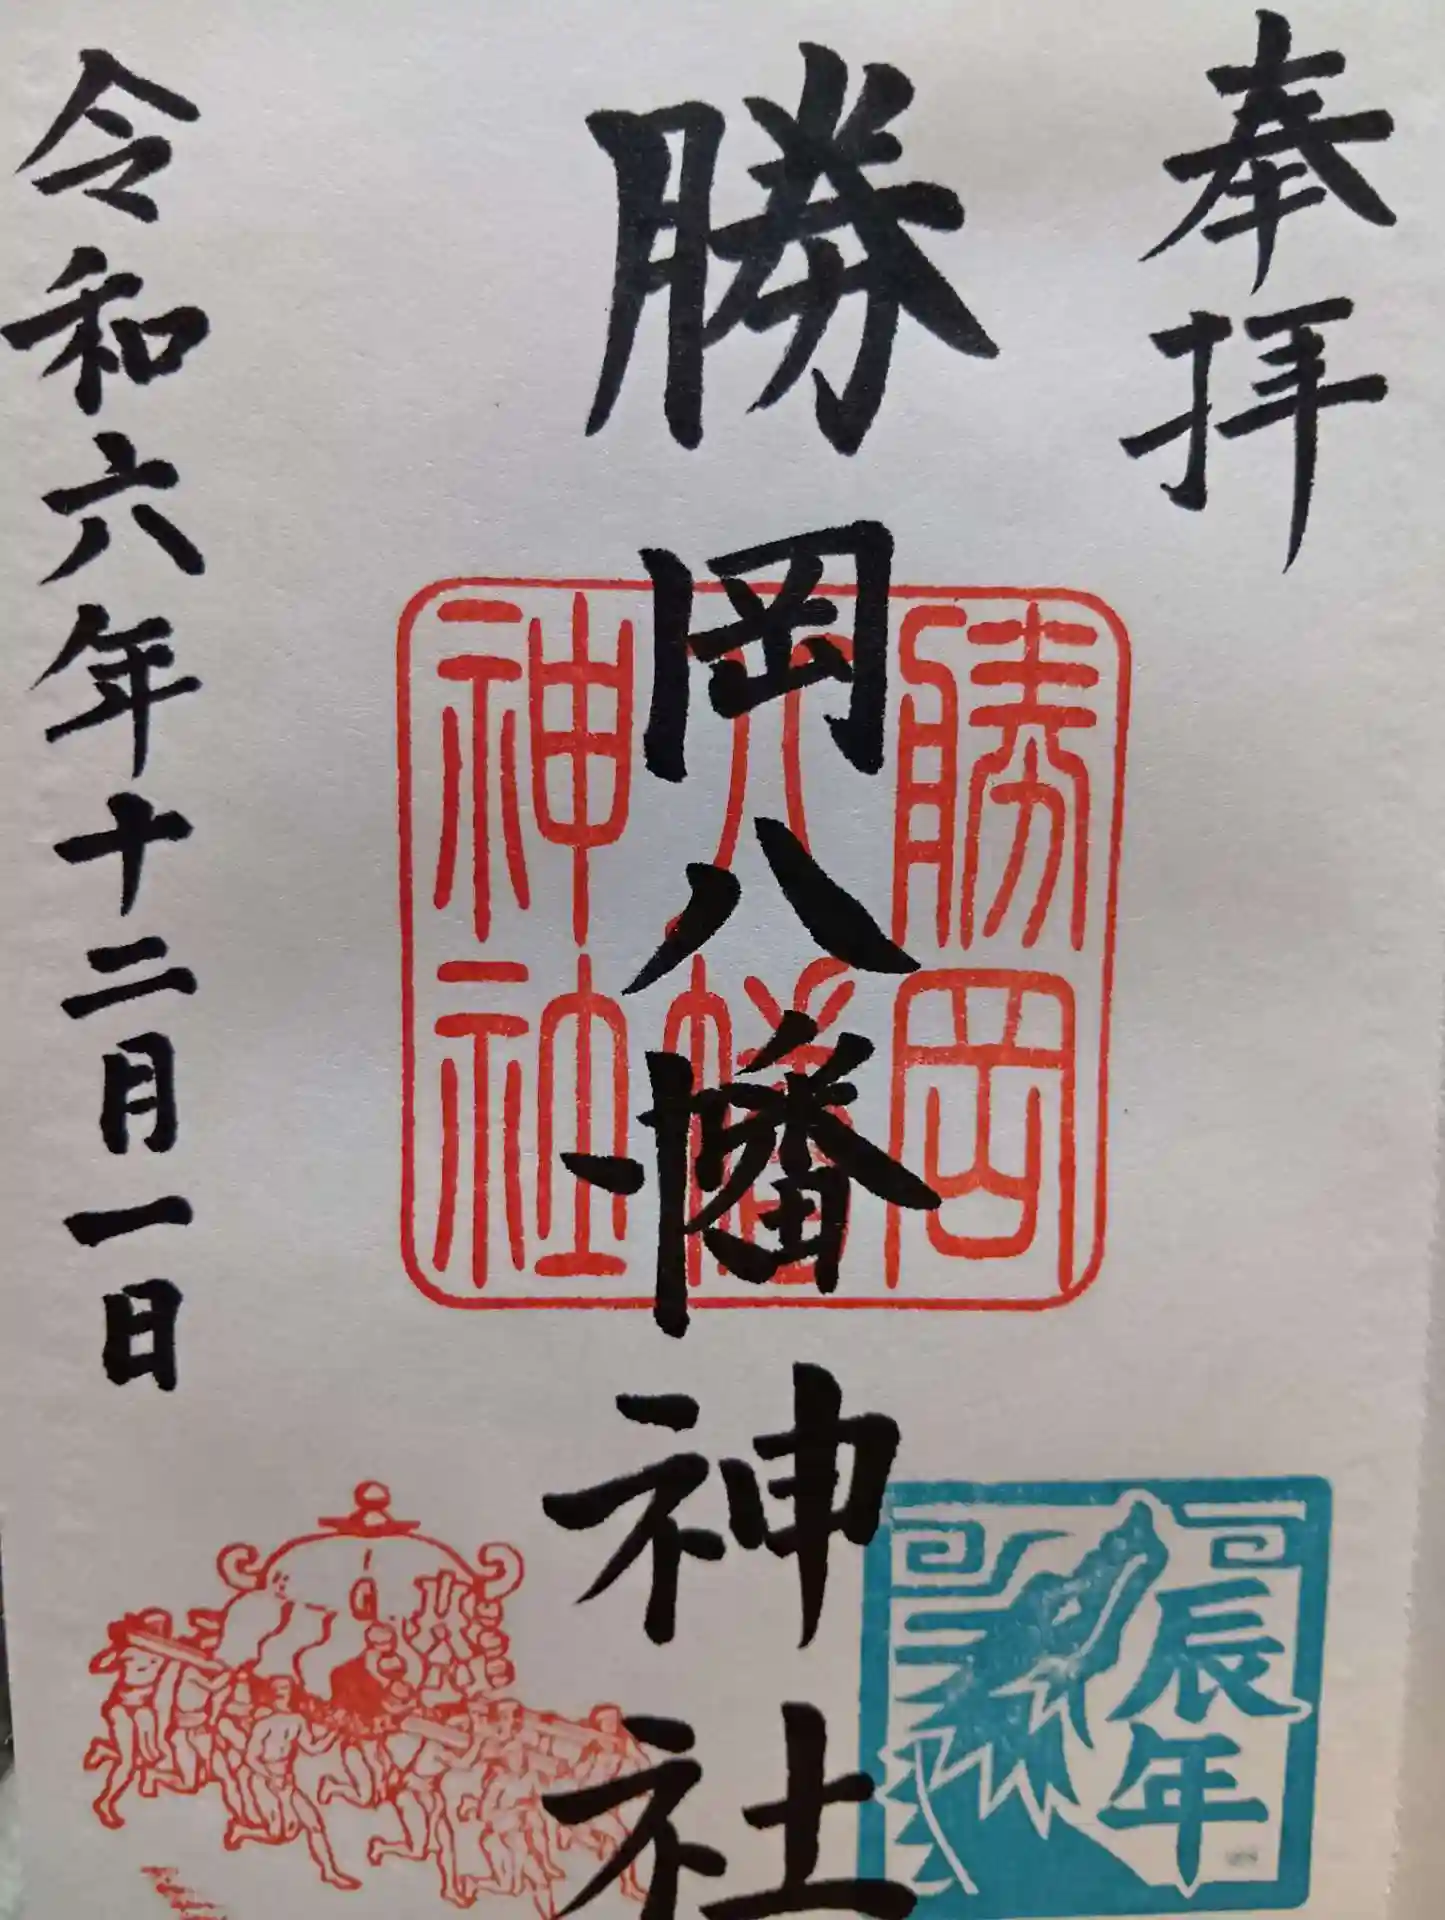 奉拝
勝岡八幡神社
令和六年十二月一日
勝岡
八幡
神社
辰年